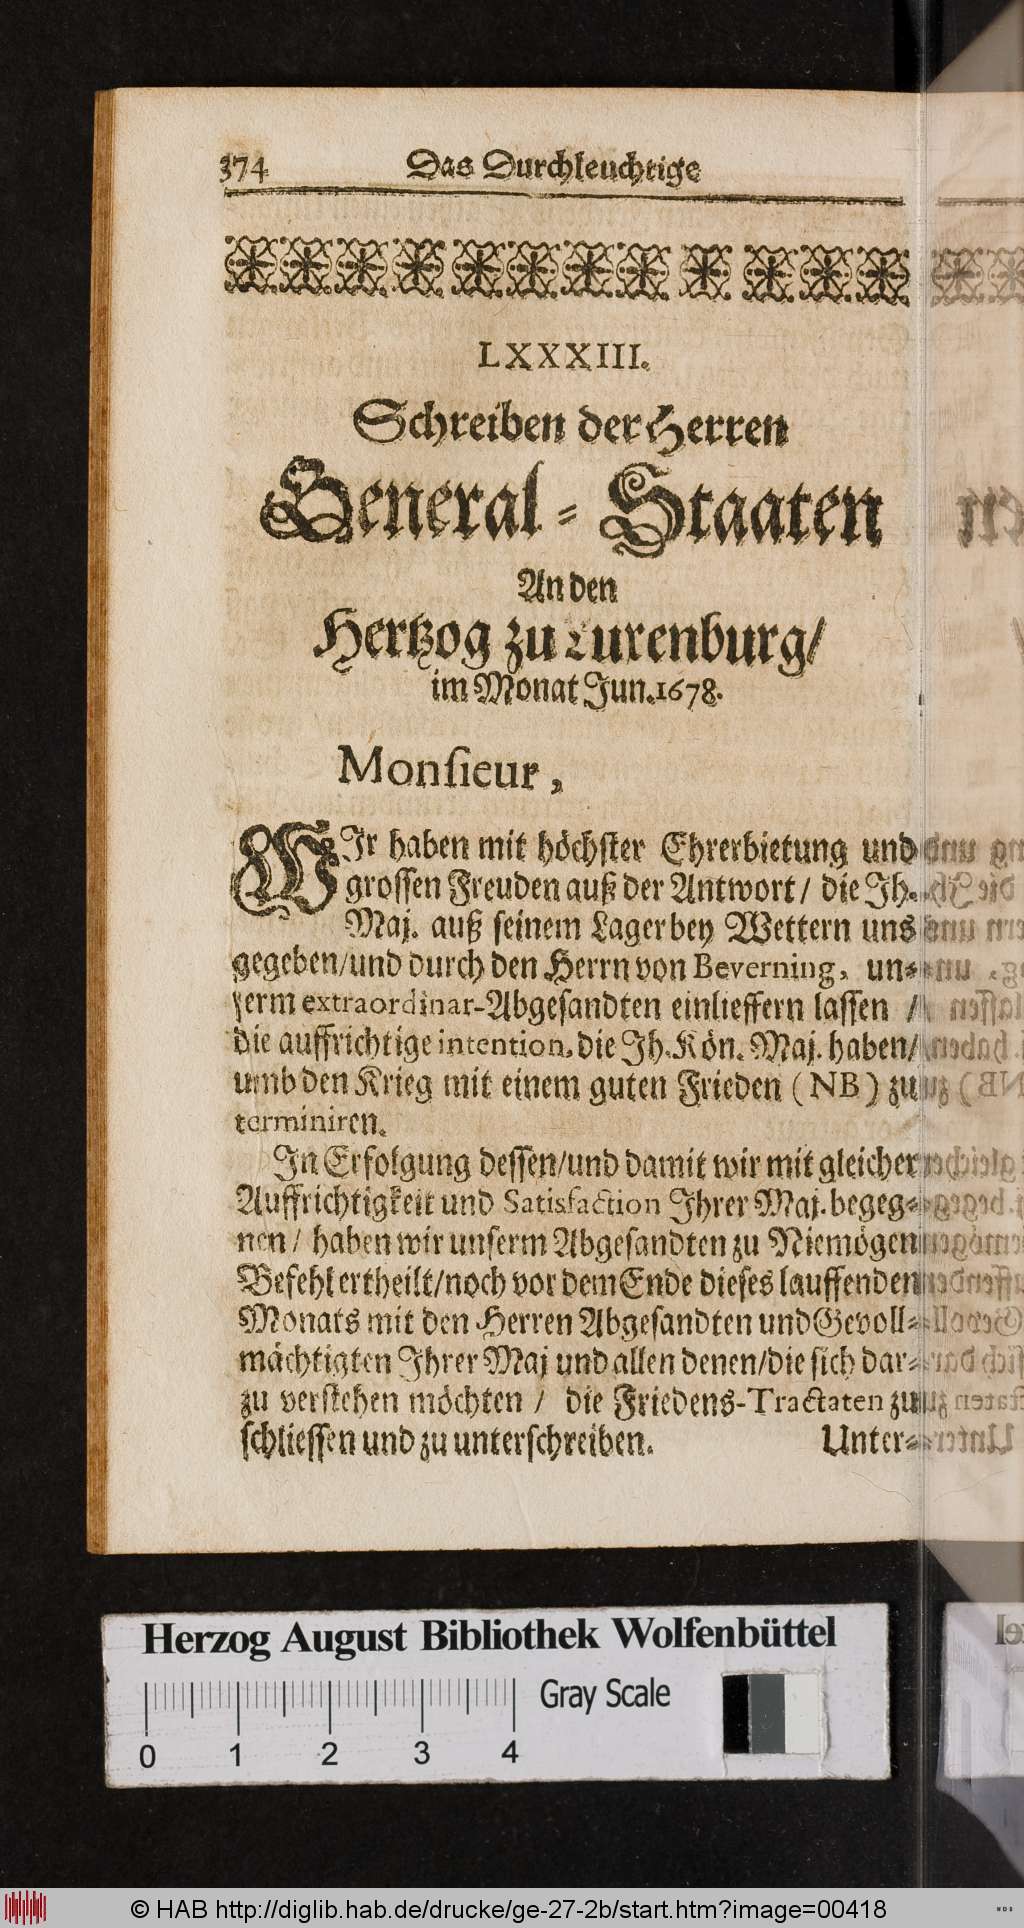 374 Das Durchleuchtige
LXXXIII.
Schreiben der Herren
General-Staaten
An den
Hertzog zu Luxenburg/
im Monat Jun. 1678.
Monsieur,
WIr haben mit höchster Ehrerbietung und
grossen Freuden auß der Antwort/ die Jh.
Maj. auß seinem Lager bey Wettern uns
gegeben/und durch den Herrn von Beverning, un-
serm extraordinar-Abgesandten einlieffern lassen /
die auffrichtige intention, die Jh. Kön. Maj. haben/
umb den Krieg mit einem guten Frieden (NB) zu
terminiren.
In Erfolgung dessen/und damit wir mit gleicher
Auffrichtigkeit und Satisfaction Jhrer Maj. begeg-
nen / haben wir unserm Abgesandten zu Niemögen
Befehl ertheilt/noch vor dem Ende dieses lauffenden
Monats mit den Herren Abgesandten und Gevoll-
mächtigten Jhrer Maj und allen denen/die sich dar-
zu verstehen möchten / die Friedens-Tractaten zu
schliessen und zu unterschreiben. Unter-
Herzog August Bibliothek Wolfenbüttel
Gray Scale
0 1 2 3 4
© HAB http://diglib.hab.de/drucke/ge-27-2b/start.htm?image=00418